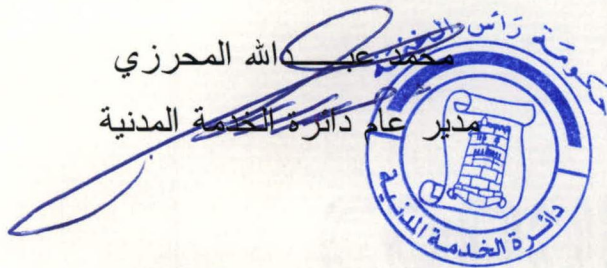 محمد عبـــدالله المحرزي
مدير عام دائرة الخدمة المدنية
حكومة رأس الخيمة
دائرة الخدمة المدنية